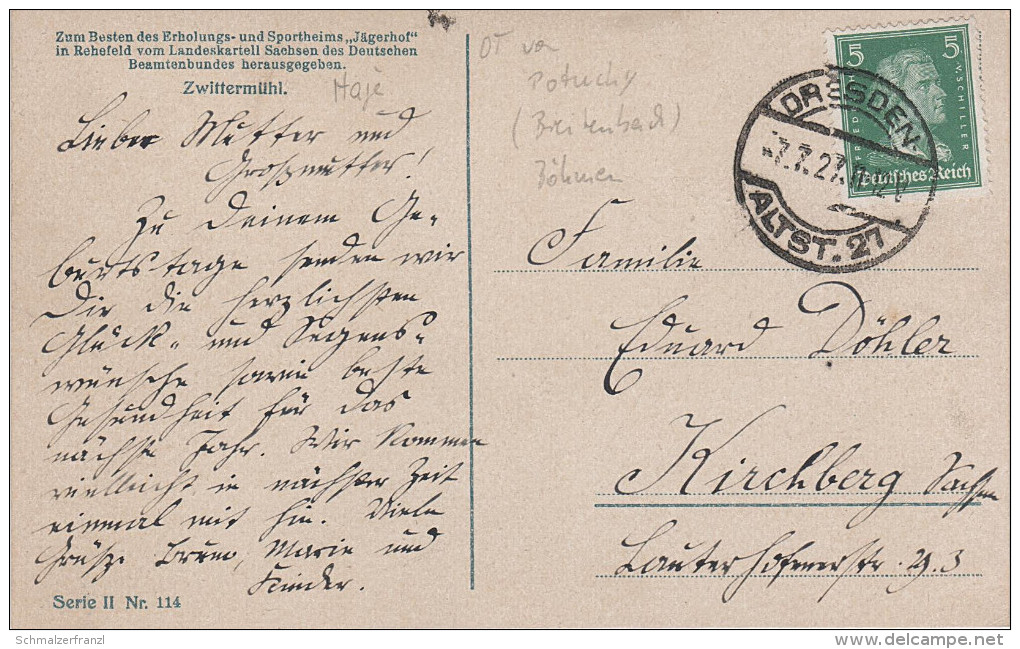 Zum Besten des Erholungs- und Sportheims „Jägerhof“
in Rehefeld vom Landeskartell Sachsen des Deutschen
Beamtenbundes herausgegeben.
Zwittermühl.
Haje
OT von
Potuchy
(Breitenbach)
Böhmen
Liebe Mutter und
Großmutter!
Zu Deinem Ge-
burtstage senden wir
Dir die herzlichsten
Glück- und Segens-
wünsche sowie beste
Gesundheit für das
nächste Jahr. Wir kommen
vielleicht in nächster Zeit
einmal mit hin. Viele
Grüße Bruno, Marie und
Kinder.
Serie II Nr. 114
5 5
FRIEDRICH V. SCHILLER
Deutsches Reich
DRESDEN
7.7.27
ALTST. 27
Familie
Eduard Döhler
Kirchberg Sachsen
Lauterhofenerstr. 3
Schmalzerfranzl
delcampe.net